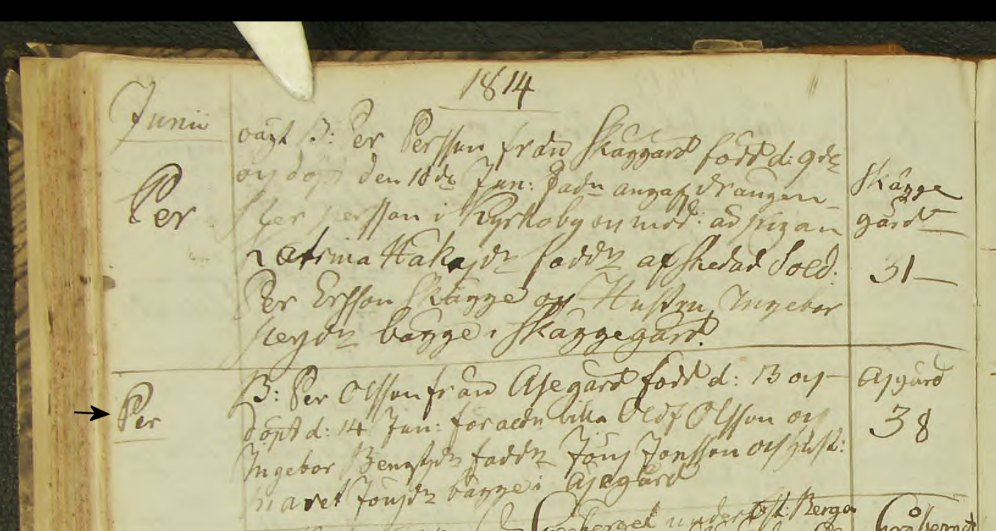 1814
Junii
oägt B: Per Persson från Skäggård född d: 9de
och döpt den 10de Jun: fadn angafs drängen
Per Persson i Kyrkoby och mod: är pigan
Catrina Håkasdr faddr afskedad Sold:
Per Ersson Skägge och Hustru Ingebor
bägge i Skäggegård.
Per
Skägge
gård
31
B: Per Olsson från Åsegård född d: 13 och
döpt d: 14 Jun: föräldr Olof Olsson och
Ingebor Bengtsdr faddr Jöns Jonsson och hust:
Maret Jönsdr bägge i Åsegård
Per
Åsgård
38